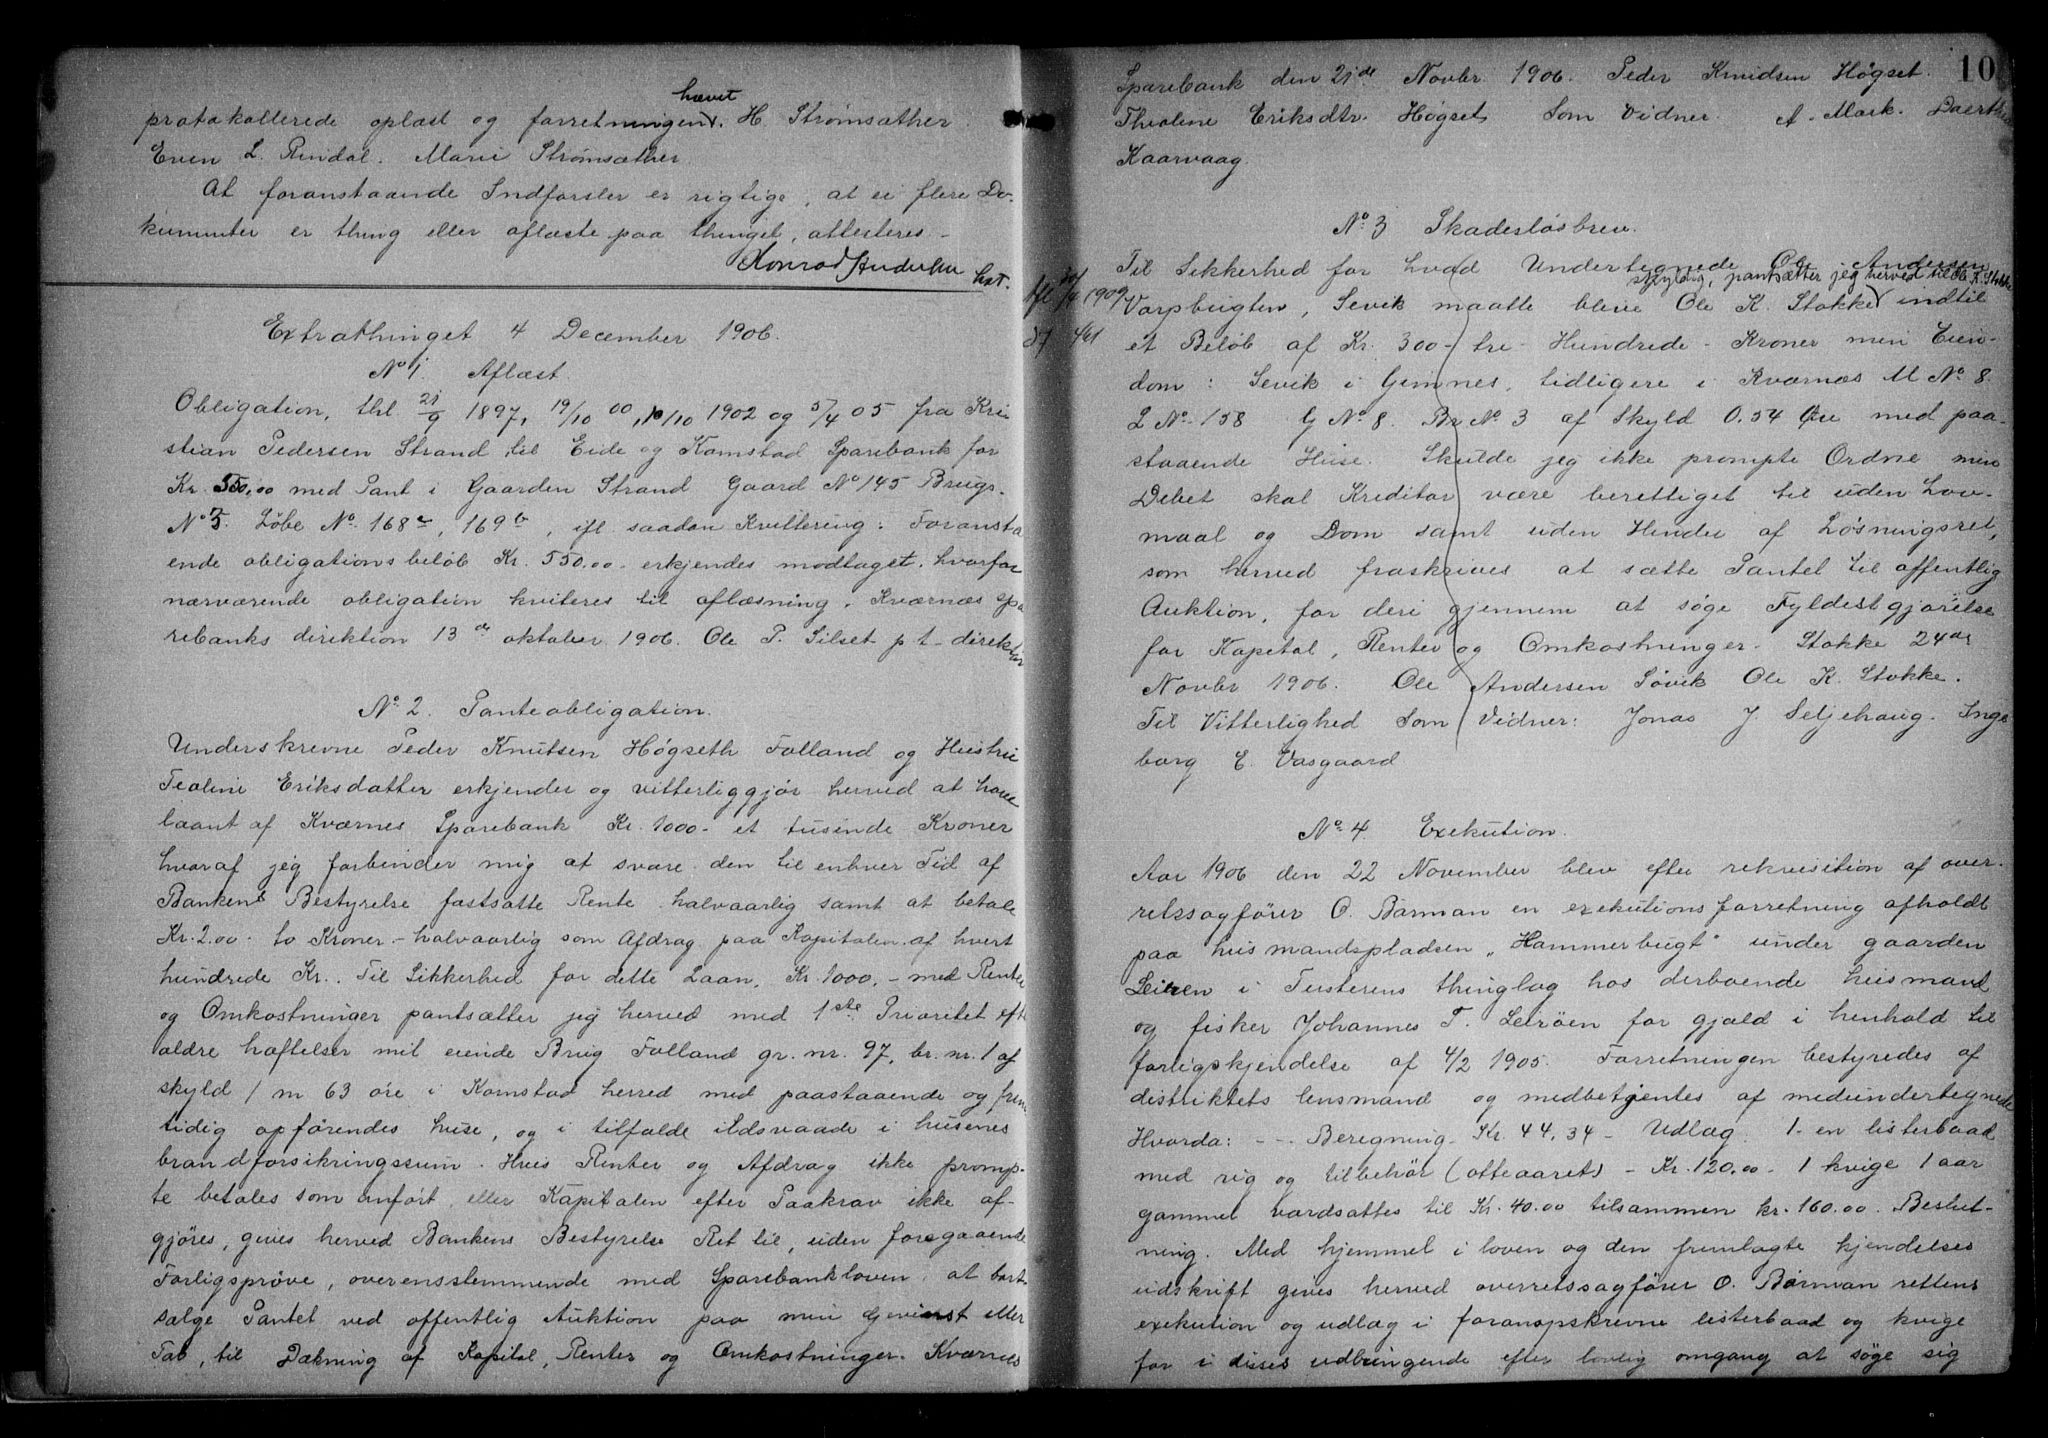 hævet
protokollerede oplæst og forretningen. H. Strømsæther
Even L. Rindal. Marie Strømsæther
At foranstaaende Indførsler er rigtige, at ei flere Do-
kumenter er thing eller aflæste paa thinget, attesteres
Konrad Anderssen
hst.
Extrathinget 4 December 1906.
No 1 Aflæst.
Obligation, thl 21/9 1897, 19/10 00, 10/10 1902 og 5/4 05 fra Kri
stian Pedersen Strand til Eide og Komstad Sparebank for
Kr. 550,00 med Pant i Gaarden Strand Gaard No 145 Brugs-
No 5. Løbe No. 168a, 169b, ifl. saadan Kvittering: Foransta
ende obligationsbeløb Kr. 550.00 erkjendes modtaget, hvorfor
nærværende obligation kviteres til aflæsning. Kværnæs spa
rebanks direktion 13de oktober 1906. Ole P. Silset p t direktør
No 2. Panteobligation.
Underskrevne Peder Knutsen Høgseth Folland og Hustru
Teoline Eriksdatter erkjender og vitterliggjør herved at have
laant af Kværnes Sparebank Kr. 1000 - et tusinde Kroner
hvoraf jeg forbinder mig at svare den til enhver Tid af
Bankens Bestyrelse fastsatte Rente halvaarlig samt at betale
Kr. 2.00 - to Kroner - halvaarlig som Afdrag paa Kapitalen af hvert
hundrede Kr. Til Sikkerhed for dette Laan, Kr. 1000. - med Rente
og Omkostninger pantsætter jeg herved med 1ste Prioritet eft
ældre hæftelser mit eiende Brug Folland gr. nr. 97, br. nr. 1 af
skyld 1 m 63 øre i Komstad herred med paastaaende og frem
tidig opførendes huse, og i tilfælde ildsvaade i husenes
brandforsikringssum. Hvis Renter og Afdrag ikke promp-
te betales som anført, eller Kapitalen efter Paakrav ikke af-
gjøres, gives herved Bankens Bestyrelse Ret til, uden foregaaende
Forligsprøve, overensstemmende med Sparebankloven, at bort-
sælge Pantet ved offentlig Auktion paa min Gevinst eller
Tab, til Dækning af Kapital, Renter og Omkostninger. Kværnes
10
Sparebank den 21de Novbr. 1906. Peder Knudsen Høgset.
Theoline Eriksdtr. Høgset Som Vidner. A. Mork.
Kaarvaag.
No 3 Skadesløsbrev.
Til Sikkerhed for hvad Undertegnede Ole Andersen
skyldig, pantsætter jeg herved til Ole K. Stokke
Afl 30/4 1909
Varpbugten, Sevik maatte blive Ole K. Stokke indtil
df 461
et Beløb af Kr. 300 - tre - Hundrede - Kroner min Eien-
dom: Sevik i Gimnes, tidligere i Kværnæs M No 8.
L No 158 G No 8. Br No 3 af Skyld 0.54 Øre med paa-
staaende Huse. Skulde jeg ikke prompte Ordne min
Debet skal Kreditor være berettiget til uden Lov-
maal og Dom samt uden Hinder af Løsningsret,
som herved fraskrives at sætte Pantet til offentlig
Auktion, for deri gjennem at søge Fyldestgjørelse
for Kapital, Renter og Omkostninger. Stokke 24de
Novbr 1906. Ole Andersen Søvik Ole K. Stokke.
Til Vitterlighed Som Vidner: Jonas J Seljehaug. Inge
borg E. Vasgaard
No 4 Exekution.
Aar 1906 den 22 November blev efter rekvisition af over-
retssagfører O. Barman en exekutionsforretning afholdt
paa husmandspladsen "Hammerbugt" under gaarden
Leiren i Tusterens thinglag hos derboende husmand
og fisker Johannes T. Leirøen for gjæld i henhold til
forligskjendelse af 4/2 1905. Forretningen bestyredes af
distriktets lensmand og medbetjentes af medundertegnede
Hvorda: - - - Beregning Kr. 44,34 - Udlæg. 1 - en listerbaad
med rig og tilbehør (otteaaret) - Kr. 120,00 - 1 kvige 1 aar
gammel værdsattes til Kr. 40.00 tilsammen kr. 160.00. Beslut-
ning. Med hjemmel i loven og den fremlagte kjendelses
udskrift gives herved overretssagfører O. Barman rettens
exekution og udlæg i foranopskrevne listerbaad og kvige
for i disses udbringende efter lovlig omgang at søge sig